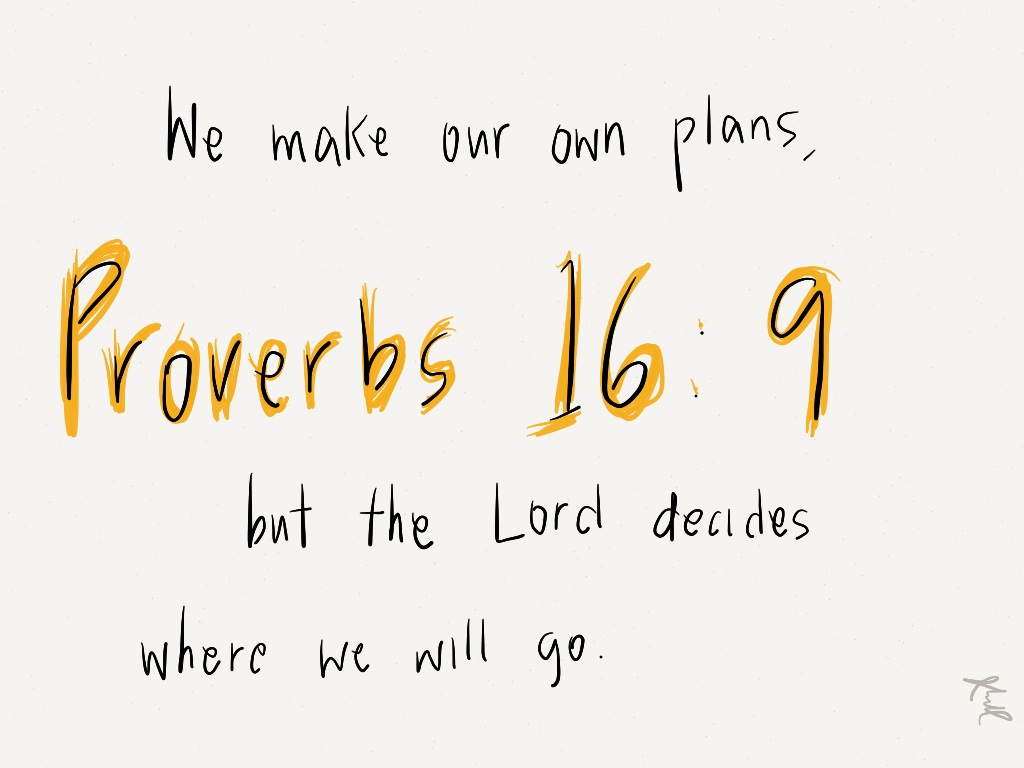 We make our own plans,
Proverbs 16:9
but the Lord decides
where we will go.